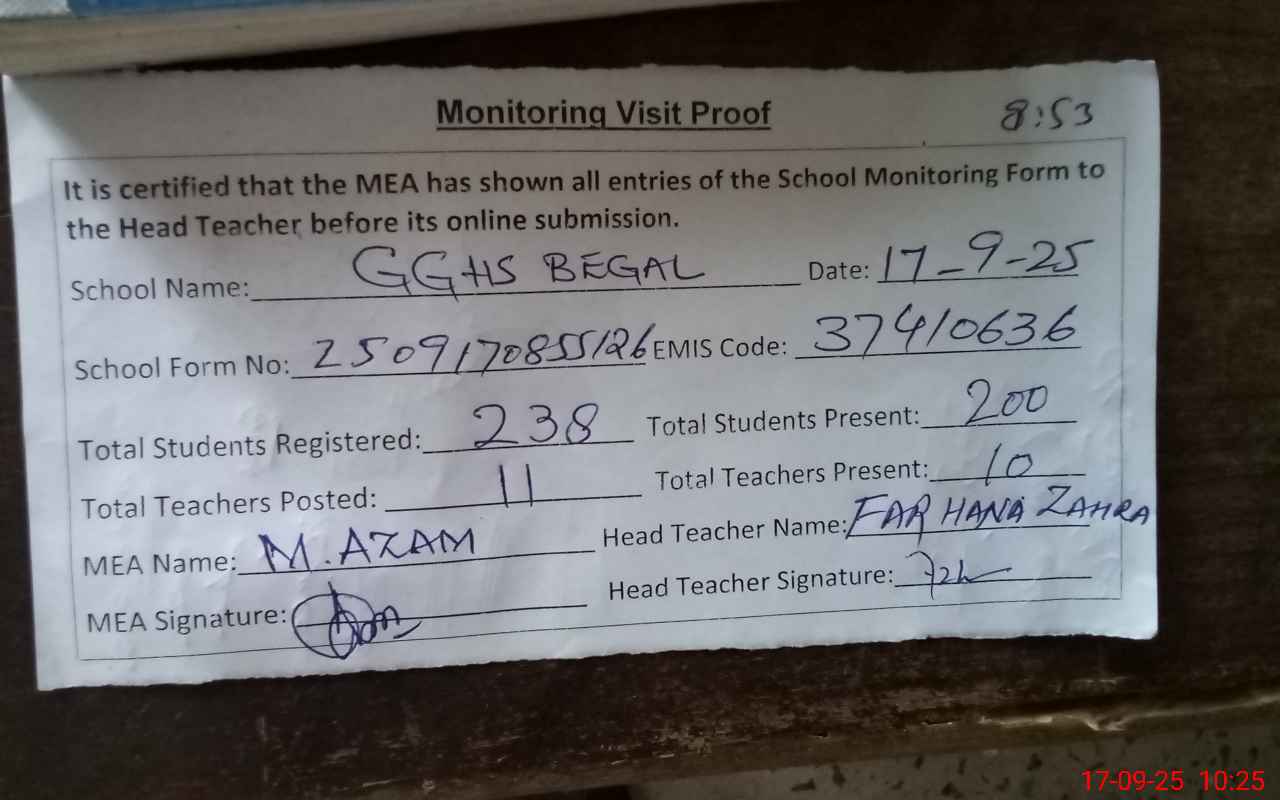 Monitoring Visit Proof 8:53
It is certified that the MEA has shown all entries of the School Monitoring Form to
the Head Teacher before its online submission.
School Name: GGHS BEGAL Date: 17-9-25
School Form No: 250917085526 EMIS Code: 37410636
Total Students Registered: 238 Total Students Present: 200
Total Teachers Posted: 11 Total Teachers Present: 10
MEA Name: M. AZAM Head Teacher Name: FARHANA ZAHRA
MEA Signature: Head Teacher Signature:
17-09-25 10:25